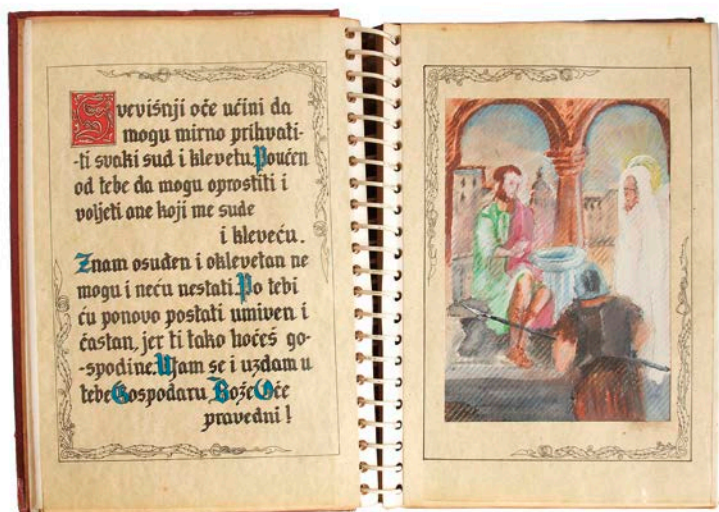 Svevišnji oče učini da
mogu mirno prihvati-
-ti svaki sud i klevetu. Poučen
od tebe da mogu oprostiti i
voljeti one koji me sude
i kleveću.
Znam osuđen i oklevetan ne
mogu i neću nestati. Po tebi
ću ponovo postati umiven i
častan, jer ti tako hoćeš go-
-spodine. Ufam se i uzdam u
tebe Gospodaru Bože Oče
pravedni!